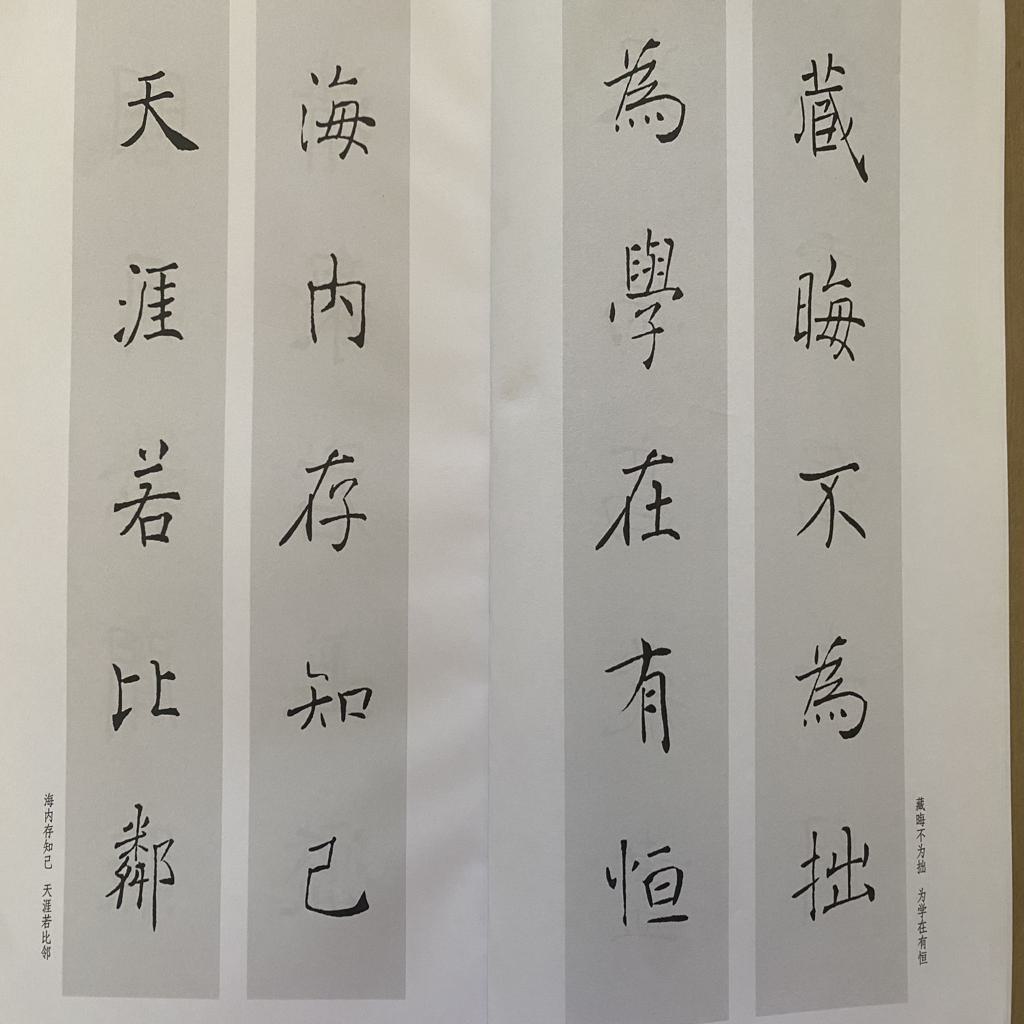 藏晦不為拙
為學在有恒
藏晦不为拙 为学在有恒
海内存知己
天涯若比鄰
海内存知己 天涯若比邻